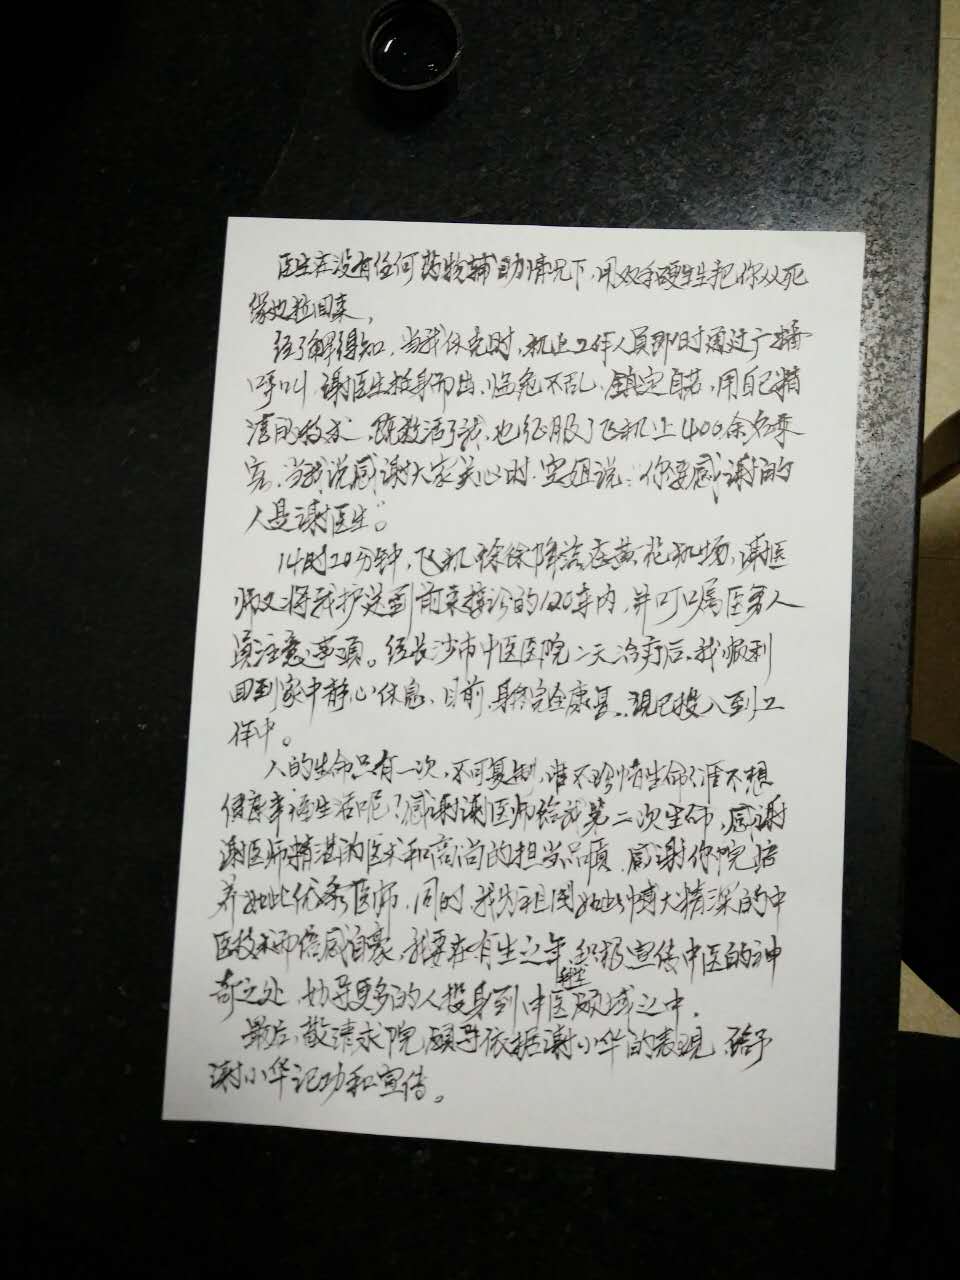 医生在没有任何药物辅助情况下，用双手硬生生把你从死
缘边拉回来，
经了解得知，当我休克时，机上工作人员即时通过广播
呼叫，谢医生挺身而出，临危不乱，镇定自若，用自己精
湛的技术，既救活了我，也征服了飞机上400余名乘
客，当我说感谢大家关心时，空姐说：你要感谢的
人是谢医生"。
14时20分钟，飞机徐徐降落在黄花机场，谢医
师又将我护送到前来接诊的120车内，并叮嘱医务人
员注意事项。经长沙市中医医院二天治疗后，我顺利
回到家中静心休息，目前，身体完全康复，现已投入到工
作中。
人的生命只有一次，不可复制，谁不珍惜生命，谁不想
健康幸福生活呢？感谢谢医师给我第二次生命，感谢
谢医师精湛的医术和高尚的担当品质，感谢你院培
养如此优秀医师，同时，我为祖国如此博大精深的中
医技术而倍感自豪，我要在有生之年，积极宣传中医的神
奇之处，劝导更多的人投身到中医领域之中，
最后，敬请求院领导依据谢小华的表现，给予
谢小华记功和宣传。